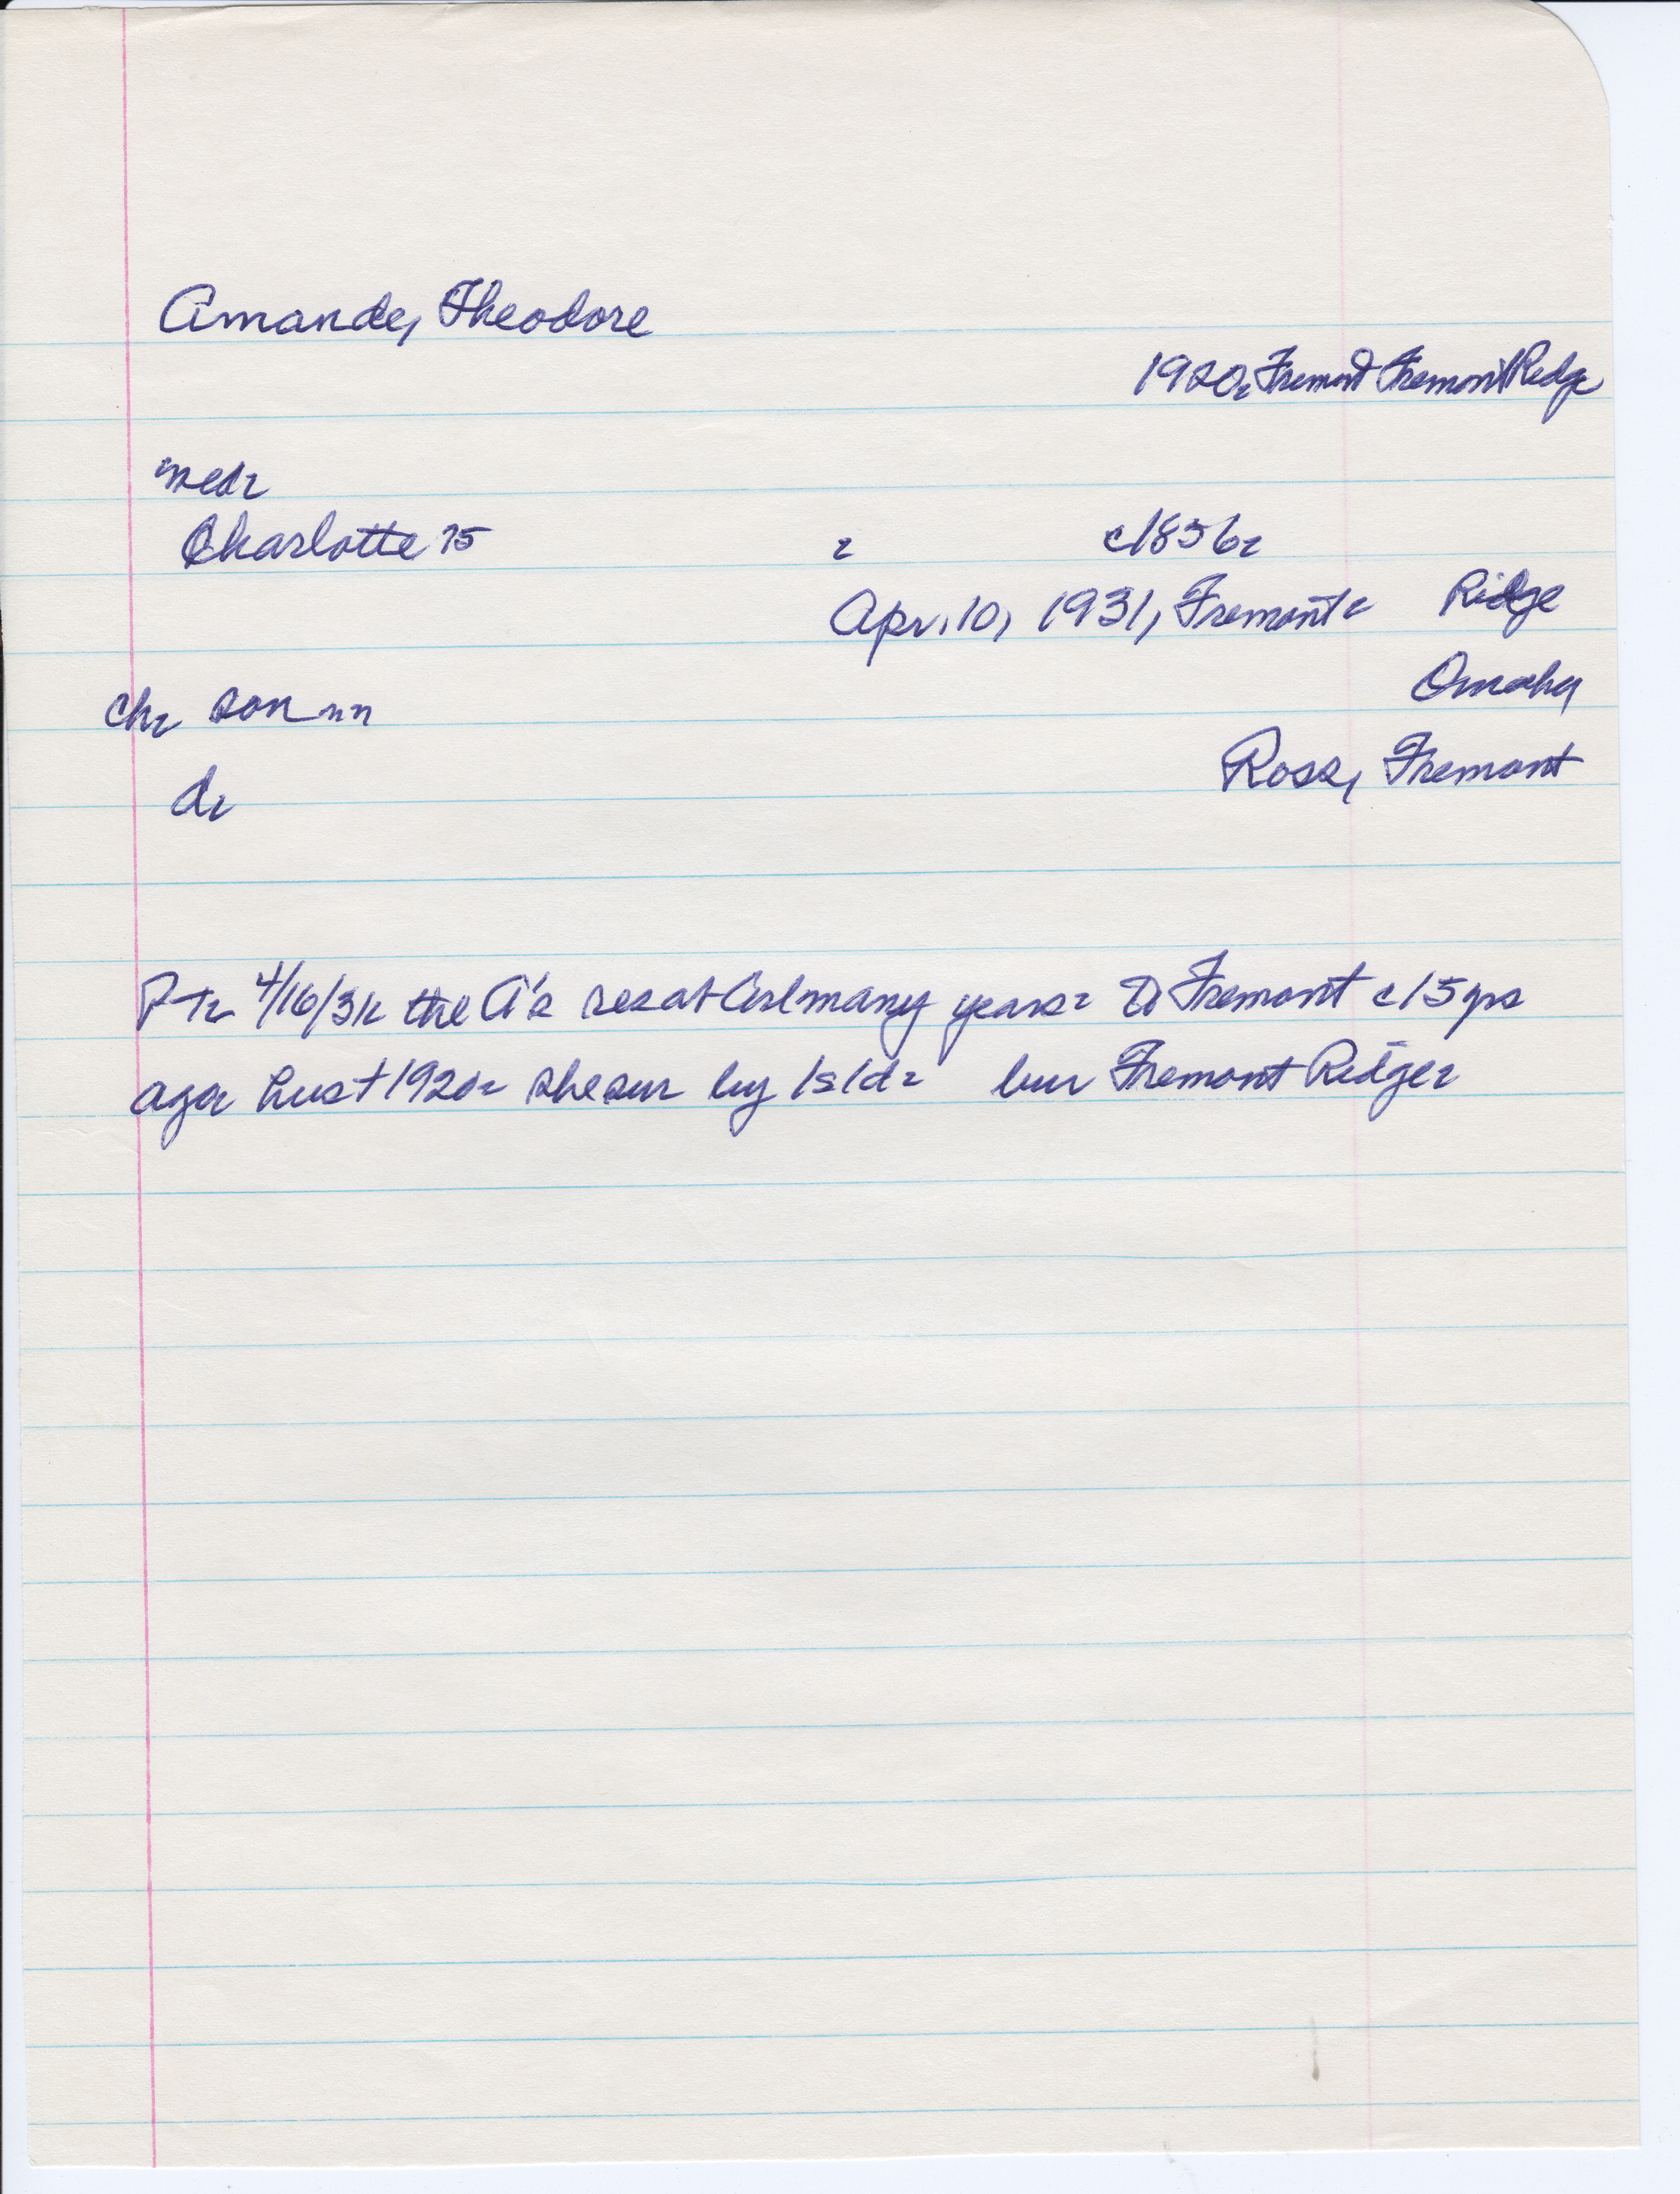 Amande, Theodore
1920, Fremont Fremont Ridge
med.
Charlotte 75 c1856.
Apr. 10, 1931, Fremont. Ridge
Omaha
ch. son nn
Ross, Fremont
d.
4/16/31. the A's res at Arl many years. to Fremont c15 yrs
ago. hus + 1920. she sur by 1s 1d. bur Fremont Ridge.